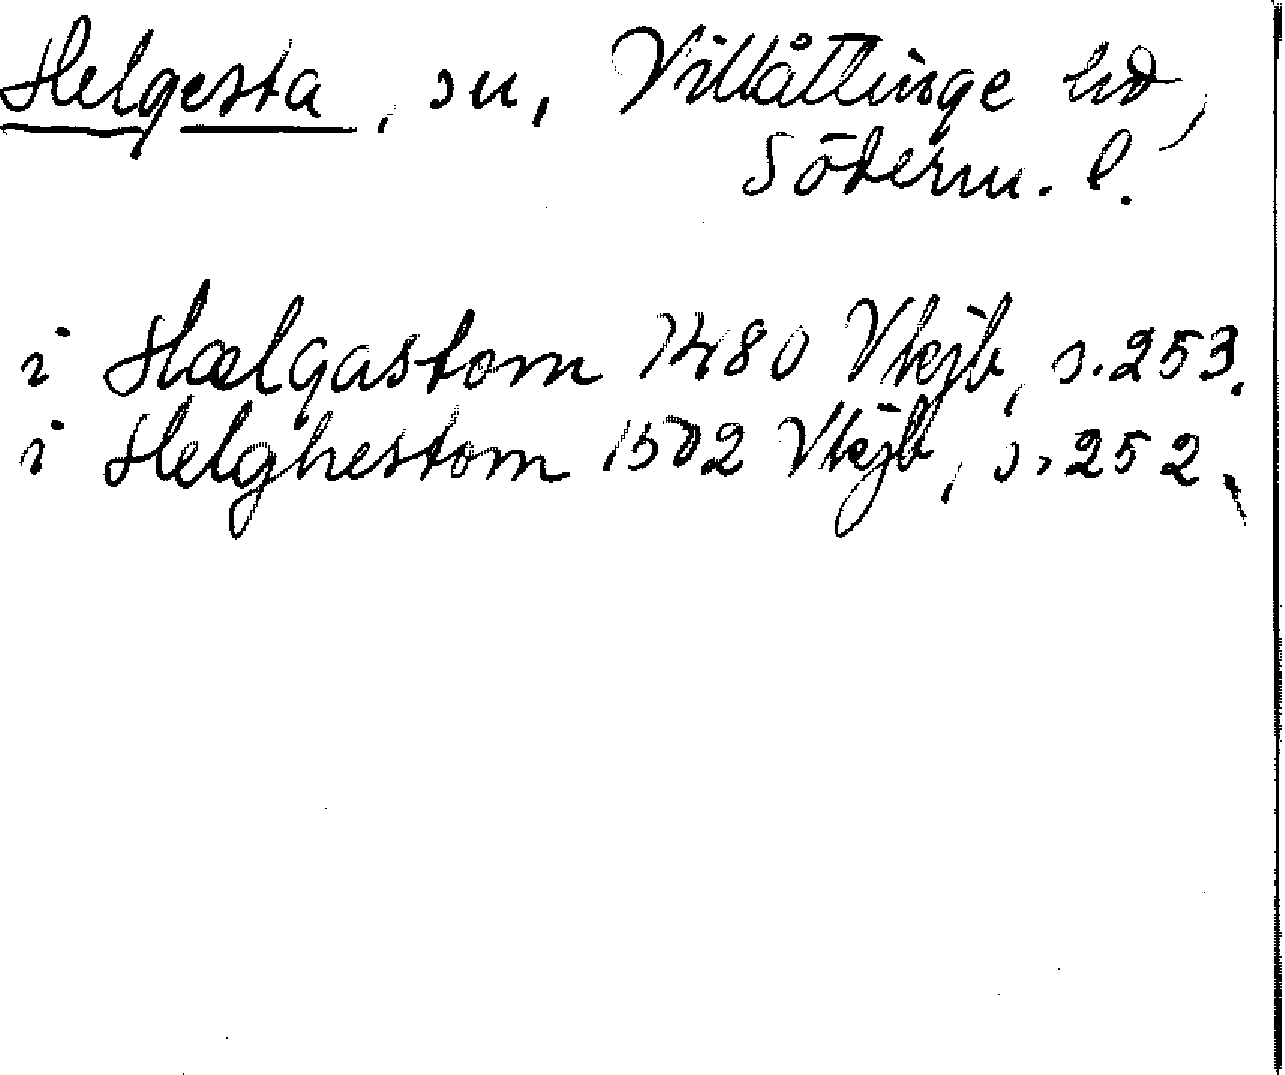 Helgesta, sn, Villåttinge hd,
Söderm. l.
i Hælgastom 1480 Vkjb, s. 253.
i Helghestom 1502 Vkjb, s. 252.